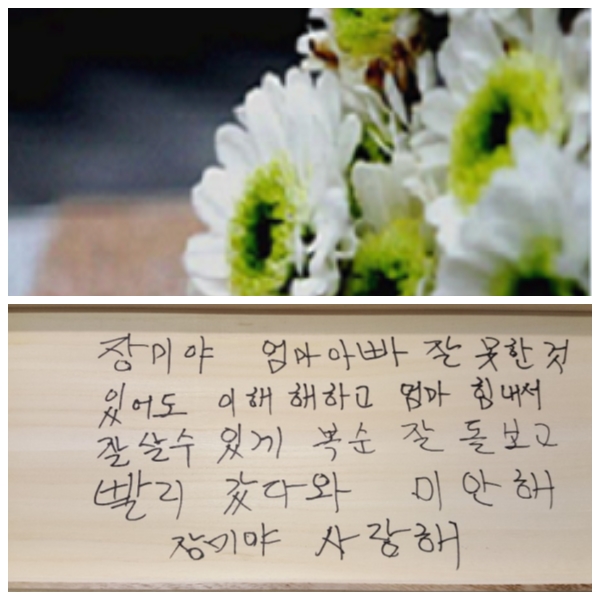 장미야 엄마아빠 잘못한것
있어도 이해 해하고 엄마 힘내서
잘살수 있게 복순 잘 돌보고
빨리 갔다와 미안해
장미야 사랑해